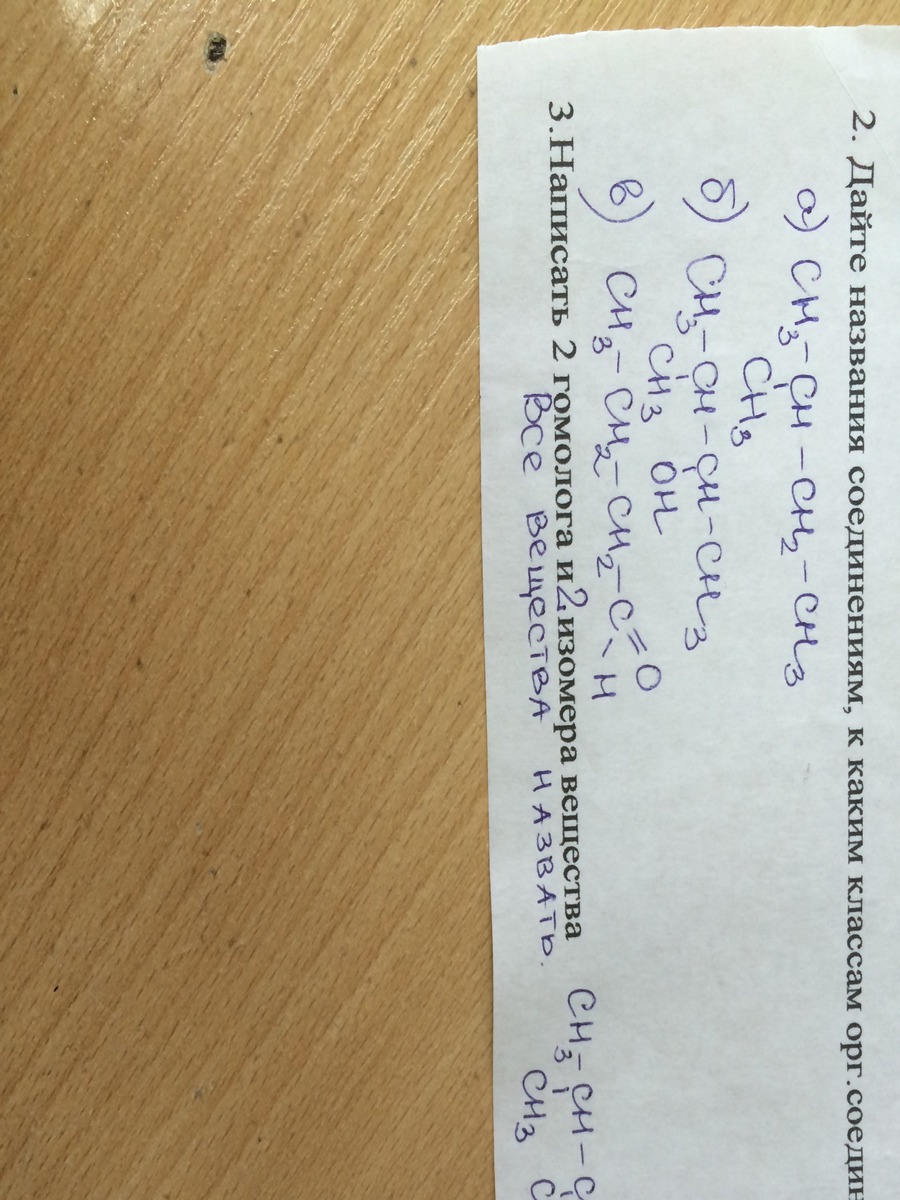 2. Дайте названия соединениям, к каким классам орг.соедин
а) CH3-CH-CH2-CH3
CH3
б) CH3-CH-CH-CH3
CH3 OH
в) CH3-CH2-CH2-C=O
-H
3.Написать 2 гомолога и 2 изомера вещества CH3-CH-C
CH3 C
Все вещества назвать.